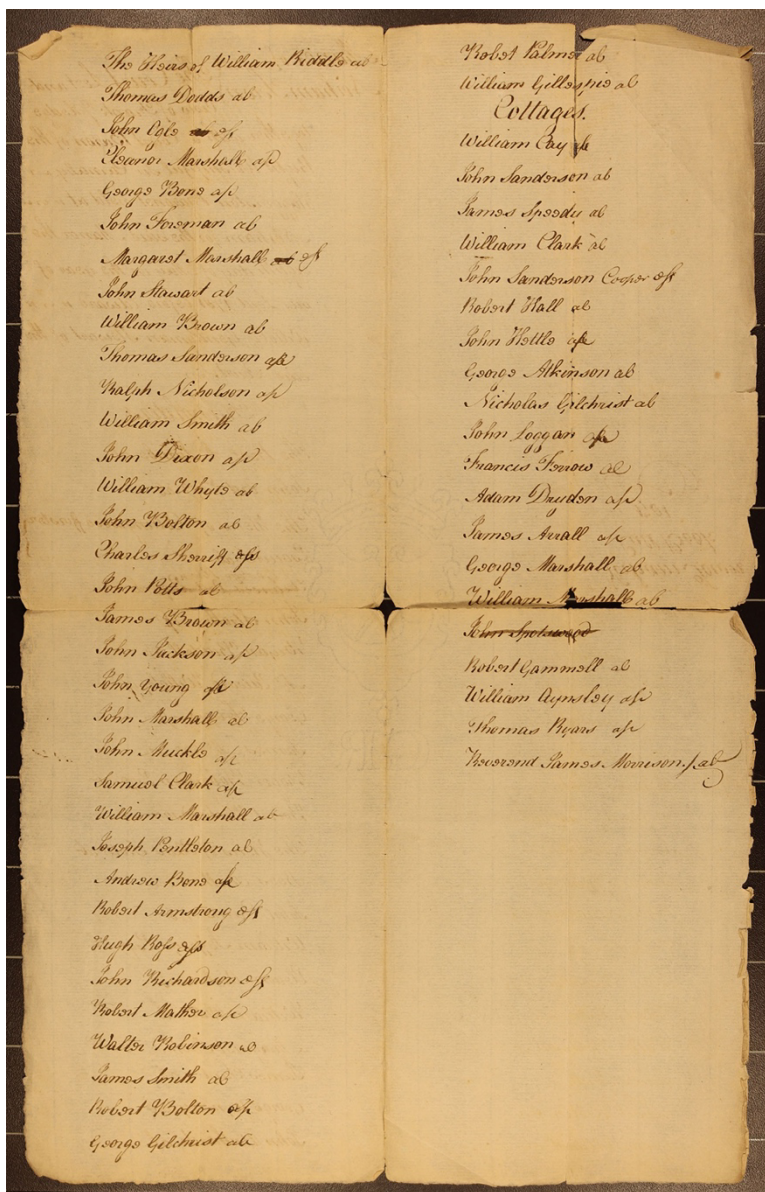 The Heirs of William Riddle ab
Thomas Dodds ab
John Cole ab ess
Eleanor Marshall ap
George Bone ap
John Foreman ab
Margaret Marshall ab ess
John Stewart ab
William Brown ab
Thomas Sanderson
Ralph Nicholson ap
William Smith ab
John Dixon ap
William Whyte ab
John Bolton ab
Charles Sherriff ess
John Potts ab
James Brown ab
John Jackson ap
John Young
John Marshall ab
John Muckle ap
Samuel Clark ap
William Marshall ab
Joseph Pentleton ab
Andrew Bone
Robert Armstrong ess
Hugh Ross ess
John Richardson ess
Robert Mather ap
Walter Robinson ab
James Smith ab
Robert Bolton
George Gilchrist ab
Robet Palmer ab
William Gillespie ab
Cottages.
William Cay
John Sanderson ab
James Speedy ab
William Clark ab
John Sanderson Cooper ess
Robert Hall ab
John Hettle
George Atkinson ab
Nicholas Gilchrist ab
John Loggan
Francis Ferrow ab
Adam Dryden ap
James Arrall ap
George Marshall ab
William Marshall ab
John Spotswood
Robert Gammell ab
William Aynsley ap
Thomas Ryars ap
Reverend James Morrison ab